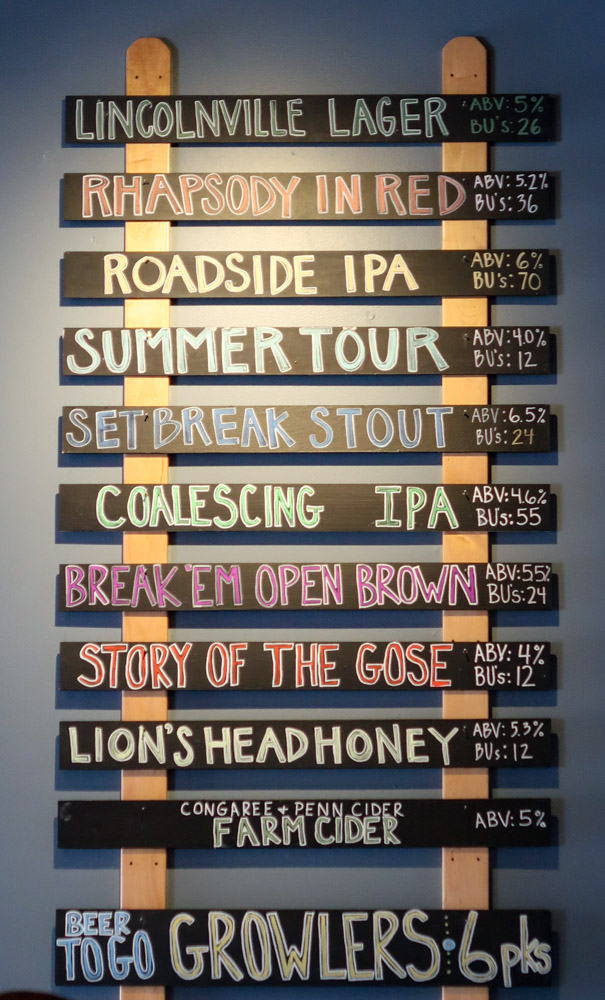 LINCOLNVILLE LAGER ABV: 5%
BU's: 26
RHAPSODY IN RED ABV: 5.2%
BU's: 36
ROADSIDE IPA ABV: 6%
BU's: 70
SUMMER TOUR ABV: 4.0%
BU's: 12
SET BREAK STOUT ABV: 6.5%
BU's: 24
COALESCING IPA ABV: 4.6%
BU's: 55
BREAK 'EM OPEN BROWN ABV: 5.5%
BU's: 24
STORY OF THE GOSE ABV: 4%
BU's: 12
LION'S HEAD HONEY ABV: 5.3%
BU's: 12
CONGAREE + PENN CIDER
FARM CIDER ABV: 5%
BEER
TO GO GROWLERS : 6 pks